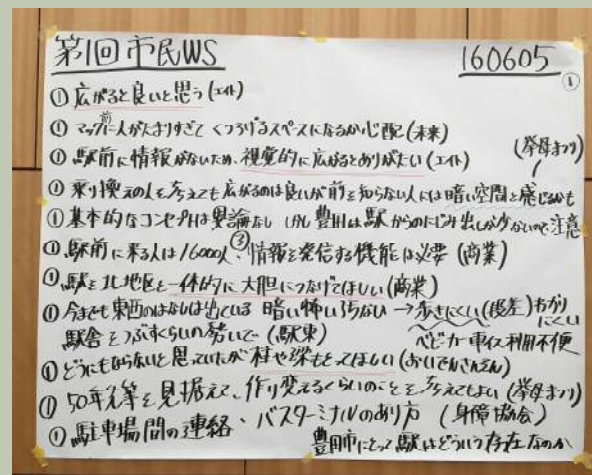 第1回市民WS 160605
①
① 広がると良いと思う(エイト)
① マップ前に人がたまりすぎて くつろげるスペースになるか心配(未来)
① 駅前に情報がないため、視覚的に広がるとありがたい(エイト)
(挙母まつり)
① 乗り換えの人を考えても広がるのは良いが前を知らない人には暗い空間と感じるかも
① 基本的なコンセプトは異論なし しかし豊田は駅からのにじみ出しが少ないので注意
① 駅前に来る人は16000人③情報を発信する機能は必要(商業)
① 駅を北地区と一体的に大胆につなげてほしい(商業)
① 今までも東西のはなしは出ている 暗い怖い汚ない→歩きにくい(段差)わかりにくい
駅舎をつぶすくらいの勢いで(駅東) ベビーカー車イス利用不便
① どうにもならないと思っていたが柱や梁もとってほしい(おいでんさんそん)
① 50年先等を見据えて、作り変えるくらいのことを考えてもよい(挙母まつり)
① 駐車場間の連絡・バスターミナルのあり方(身障協会)
豊田市にとって駅はどういう存在なのか